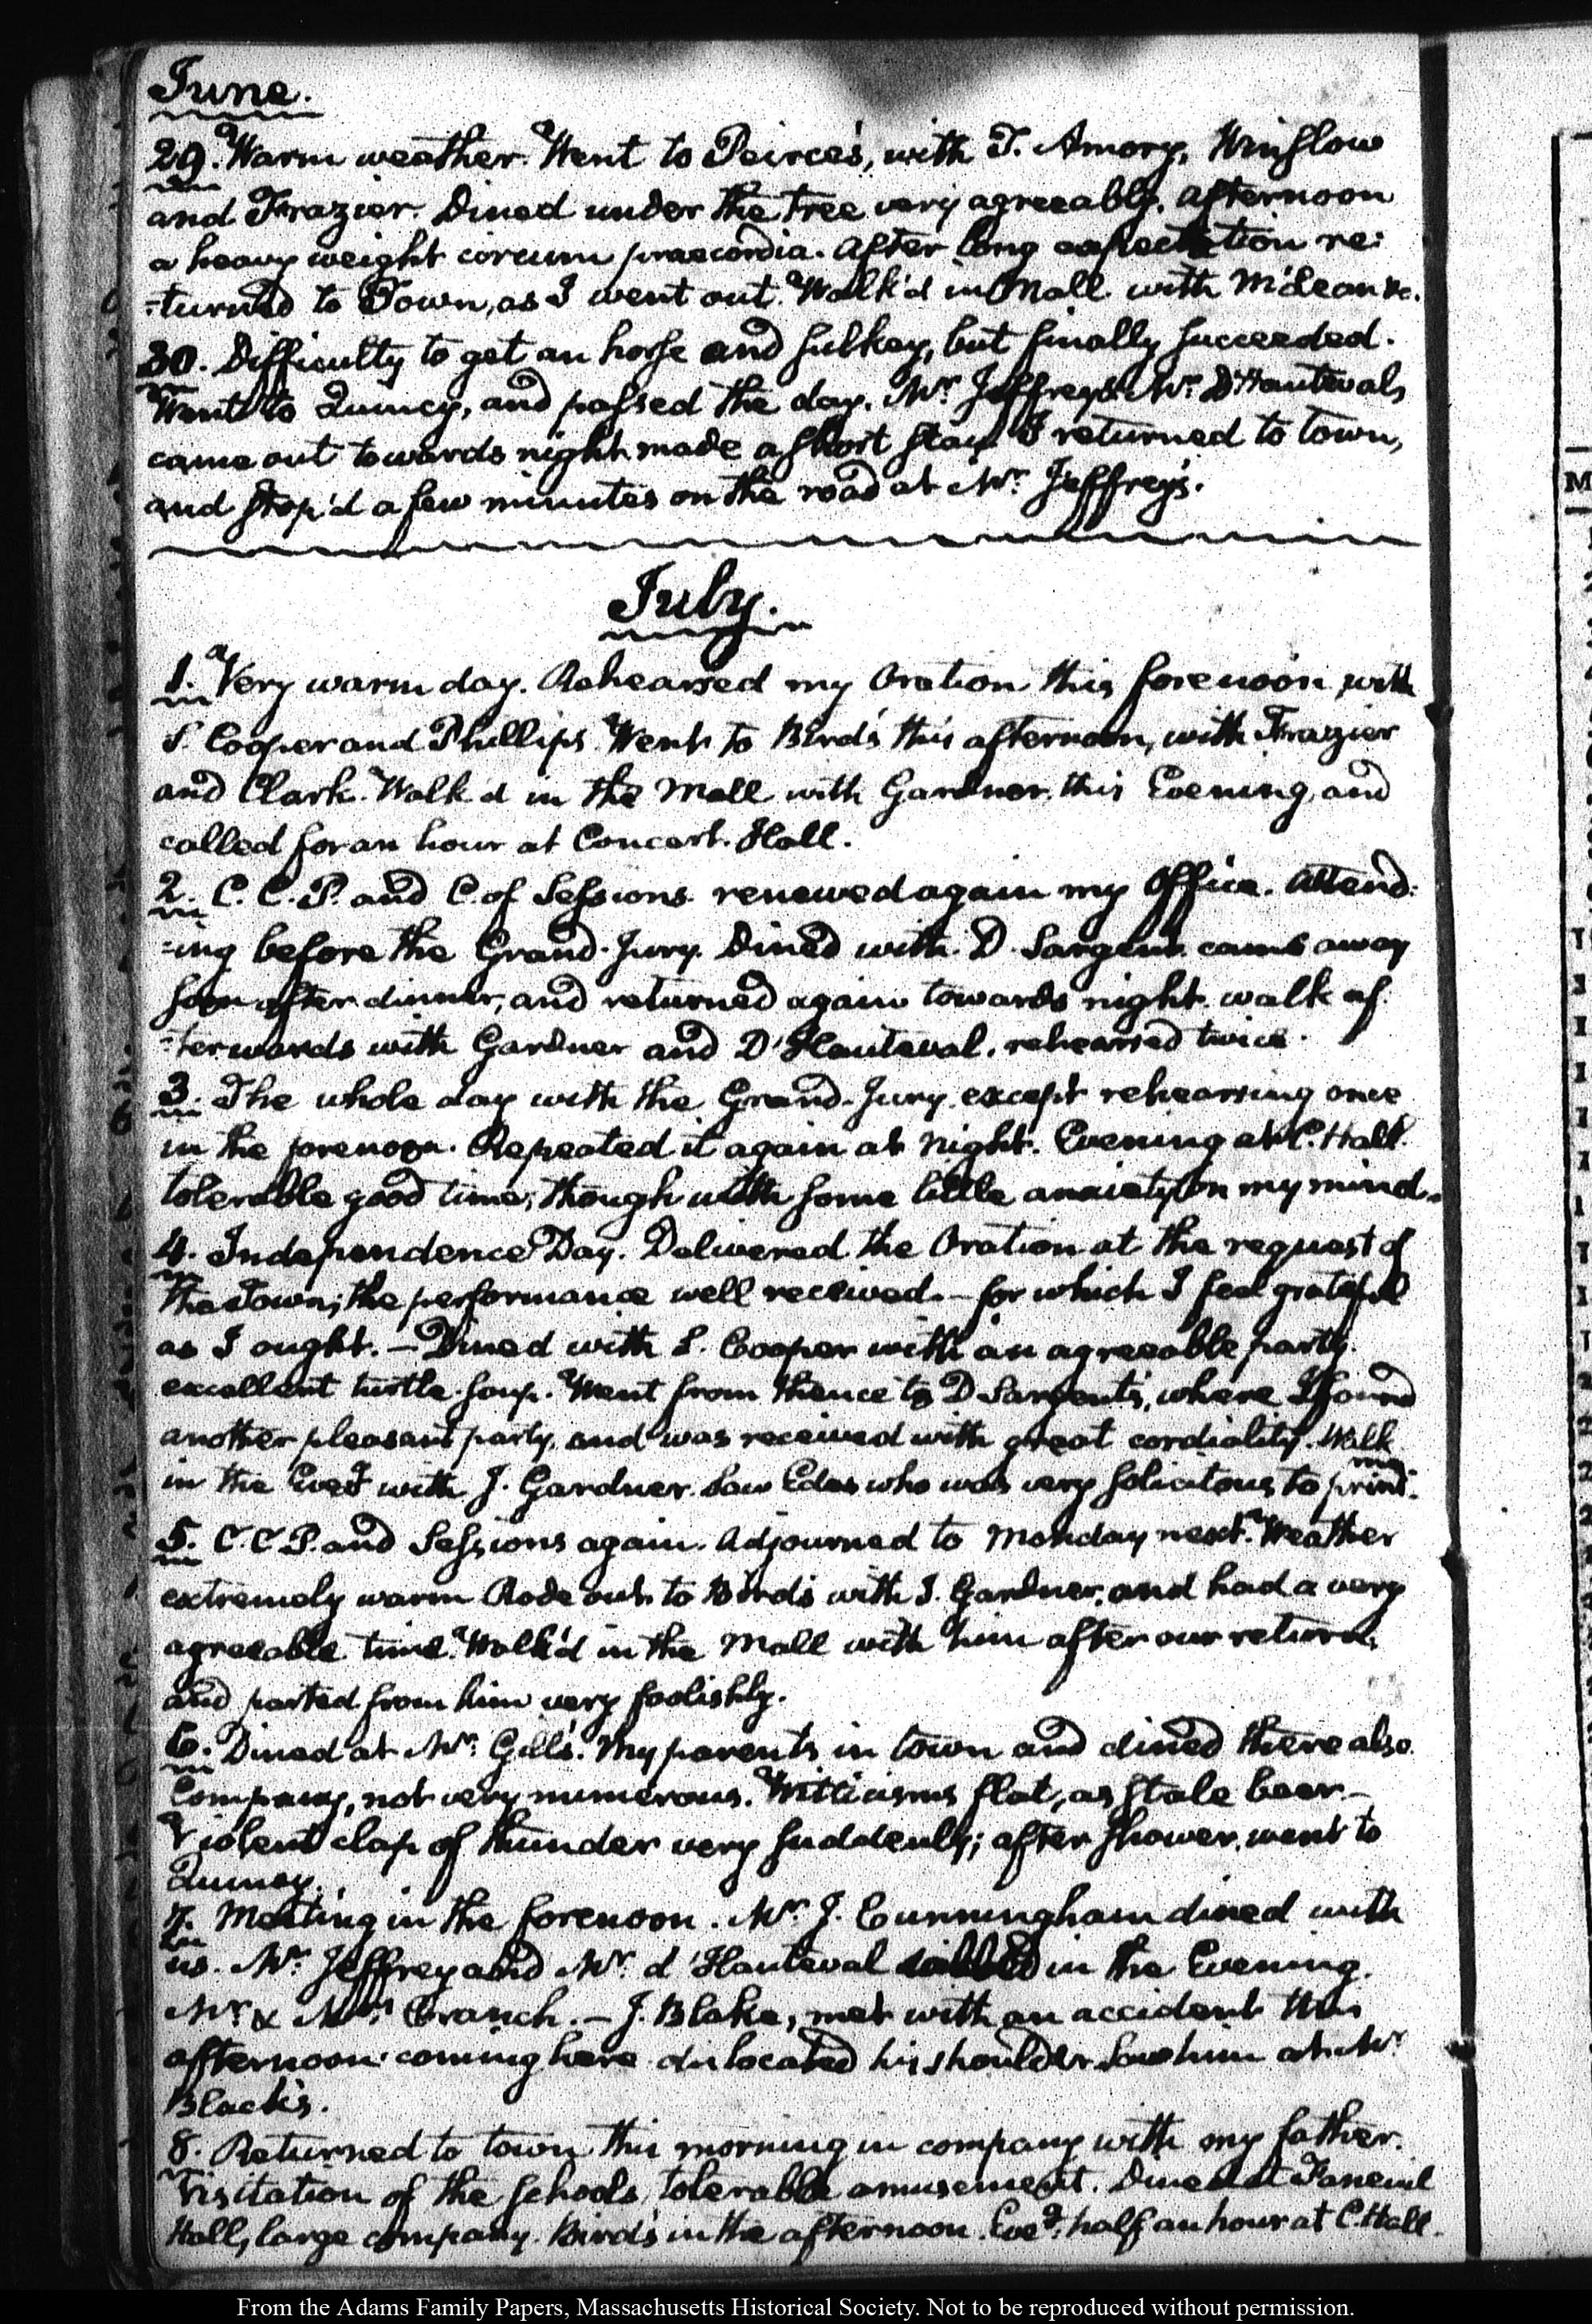 June.
29. Warm weather. Went to Peirce's, with T. Amory, Winslow
and Frazier. Dined under the tree very agreeably. Afternoon
a heavy weight circum praecordia. After long expectation re:
:turned to Town, as I went out. Walk'd in Mall with McLean &c.
30. Difficulty to get an horse and sulkey, but finally succeeded.
Went to Quincy, and passed the day. Mr. Jeffrey & Mr. D'Hautevals
came out towards night made a short stay I returned to town,
and stop'd a few minutes on the road at Mr. Jeffrey's.
July.
1. Very warm day. Rehearsed my Oration this forenoon, with
S. Cooper and Phillips. Went to Bird's this afternoon, with Frazier
and Clark. Walk'd in the Mall with Gardner this Evening, and
called for an hour at Concert-Hall.
2. C. C. P. and C. of Sessions renewed again my Office. Attend:
:ing before the Grand-Jury. Dined with D. Sargent. came away
soon after dinner, and returned again towards night. walk af:
:terwards with Gardner and D'Hauteval. rehearsed twice.
3. The whole day with the Grand-Jury. except rehearsing once
in the forenoon. Repeated it again at night. Evening at C. Hall.
tolerable good time; though with some little anxiety on my mind.
4. Independence Day. Delivered the Oration at the request of
the Town; the performance well received.—for which I feel grateful
as I ought.—Dined with S. Cooper with an agreeable party.
excellent turtle-soup. Went from thence to D Sargent's, where I found
another pleasant party, and was received with great cordiality. Walk
in the Eveg with J. Gardner. Saw Edes who was very solicitous to print.
5. C. C P. and Sessions again. Adjourned to Monday next. Weather
extremely warm Rode out to Bird's with J. Gardner, and had a very
agreeable time. Walk'd in the Mall with him after our return,
and parted from him very foolishly.
6. Dined at Mr. Gill's. My parents in town and dined there also.
Company, not very numerous. Witticisms flat, as stale beer.—
Violent clap of thunder very suddenly; after shower, went to
Quincy.
7. Meeting in the forenoon. Mr. J. Cunningham dined with
us. Mr. Jeffrey and Mr. d'Hauteval called in the Evening.
Mr. & Mrs. Cranch.—J. Blake, met with an accident this
afternoon coming here dislocated his shoulder Saw him at Mr
Black's.
8. Returned to town this morning in company with my father.
Visitation of the schools, tolerable amusement. Dined at Faneuil
Hall, large company. Bird's in the afternoon. Eveg. half an hour at C. Hall.
From the Adams Family Papers, Massachusetts Historical Society. Not to be reproduced without permission.